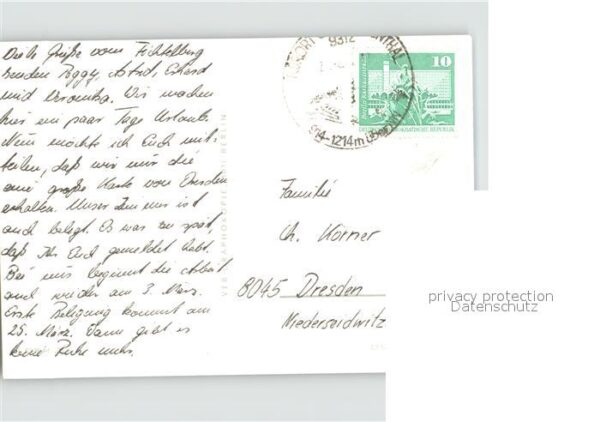 Viele Grüße vom Fichtelberg
senden Peggy, Astrid, Erhard
und Veronika. Wir machen
hier ein paar Tage Urlaub.
Nun möchte ich Euch mit-
teilen, daß wir nur die
eine große Karte von Dresden
erhalten. Unser Zimmer ist
auch belegt. Es war zu spät,
daß Ihr Euch gemeldet habt.
Bei uns beginnt die Arbeit
auch wieder am 3. März.
Erste Belegung kommt am
25. März. Dann gibt es
keine Ruhe mehr.
9312
914-1214m über
10
DEUTSCHE DEMOKRATISCHE REPUBLIK
Familie
Ch. Körner
8045 Dresden
Niedersedlitz
privacy protection
Datenschutz